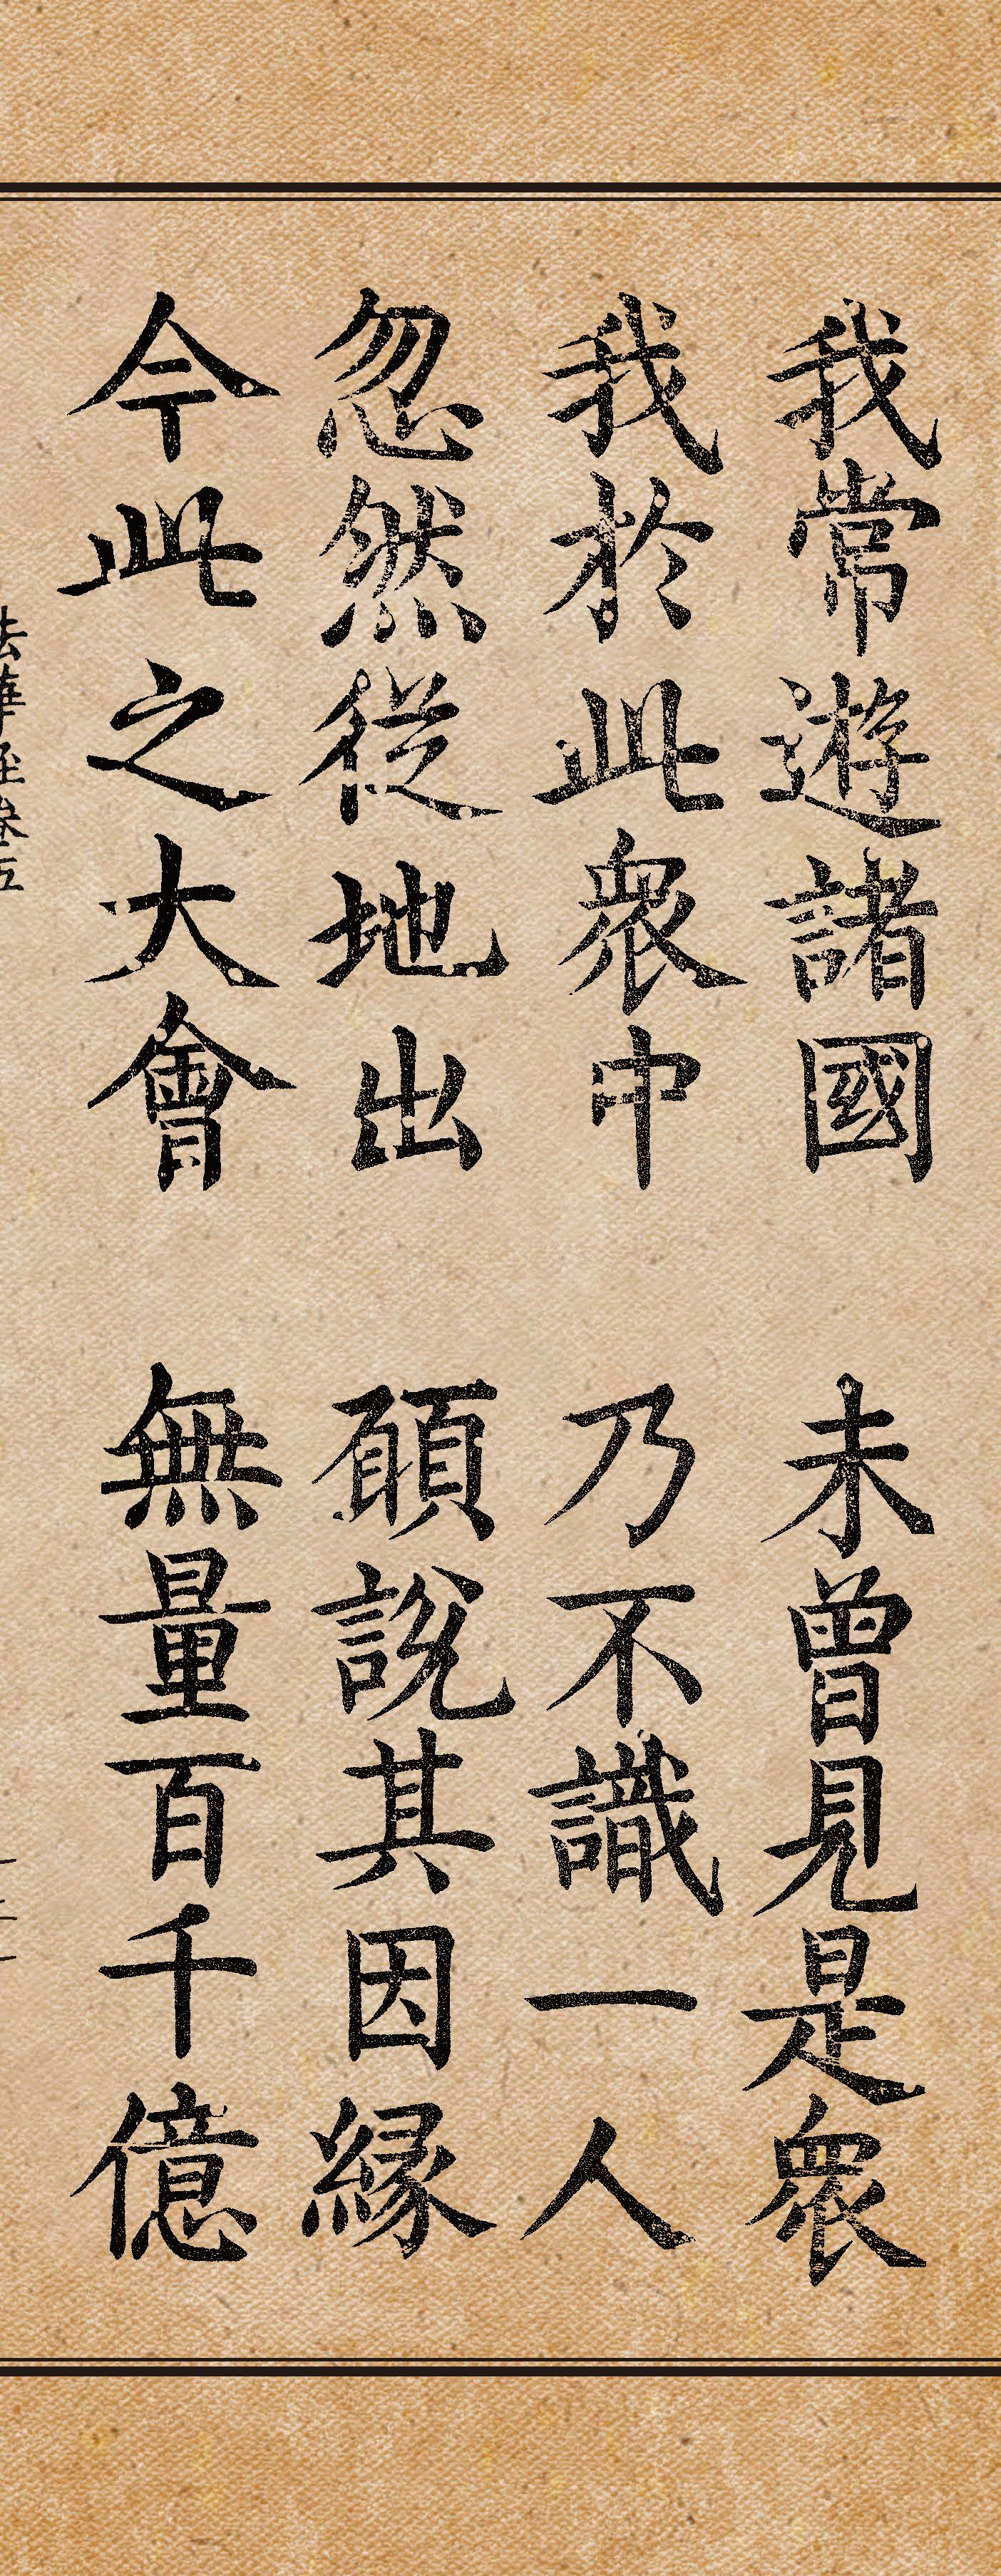 我常遊諸國　未曾見是衆
我於此衆中　乃不識一人
忽然從地出　願說其因縁
今此之大會　無量百千億
法華經卷五